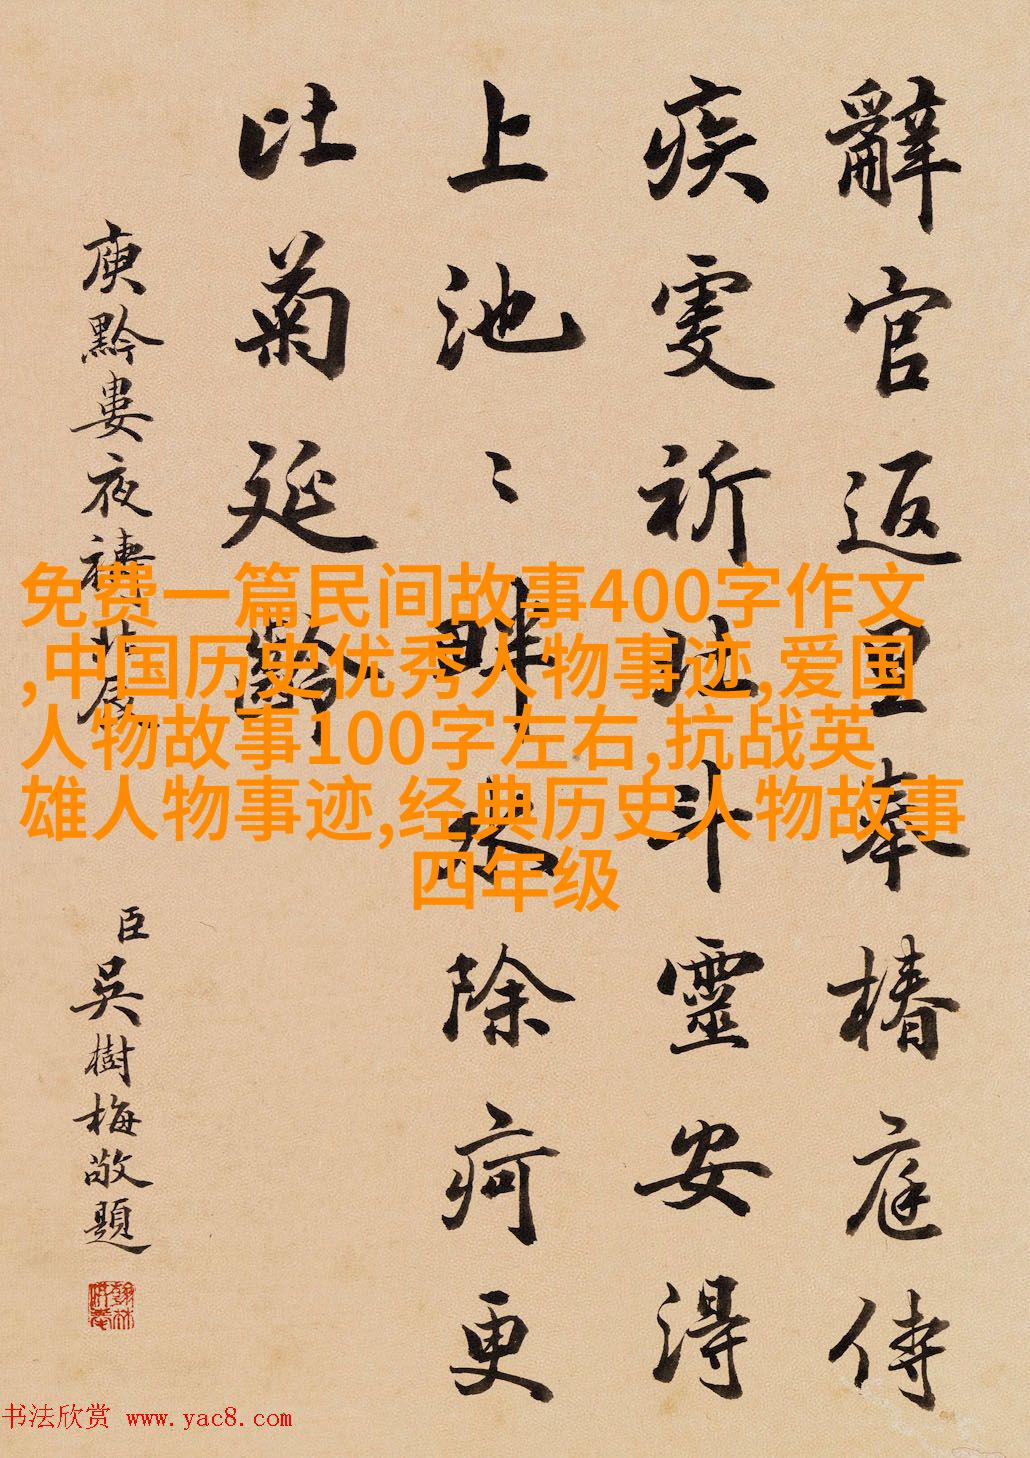 辭官返里奉椿庭侍
疾虔祈北斗靈安得
上池〻畔水除疴更
比菊延齡
庾黔婁夜禱北辰
臣吳樹梅敬題
免费一篇民间故事400字作文
,中国历史优秀人物事迹,爱国
人物故事100字左右,抗战英
雄人物事迹,经典历史人物故事
四年级
书法欣赏 www.yac8.com